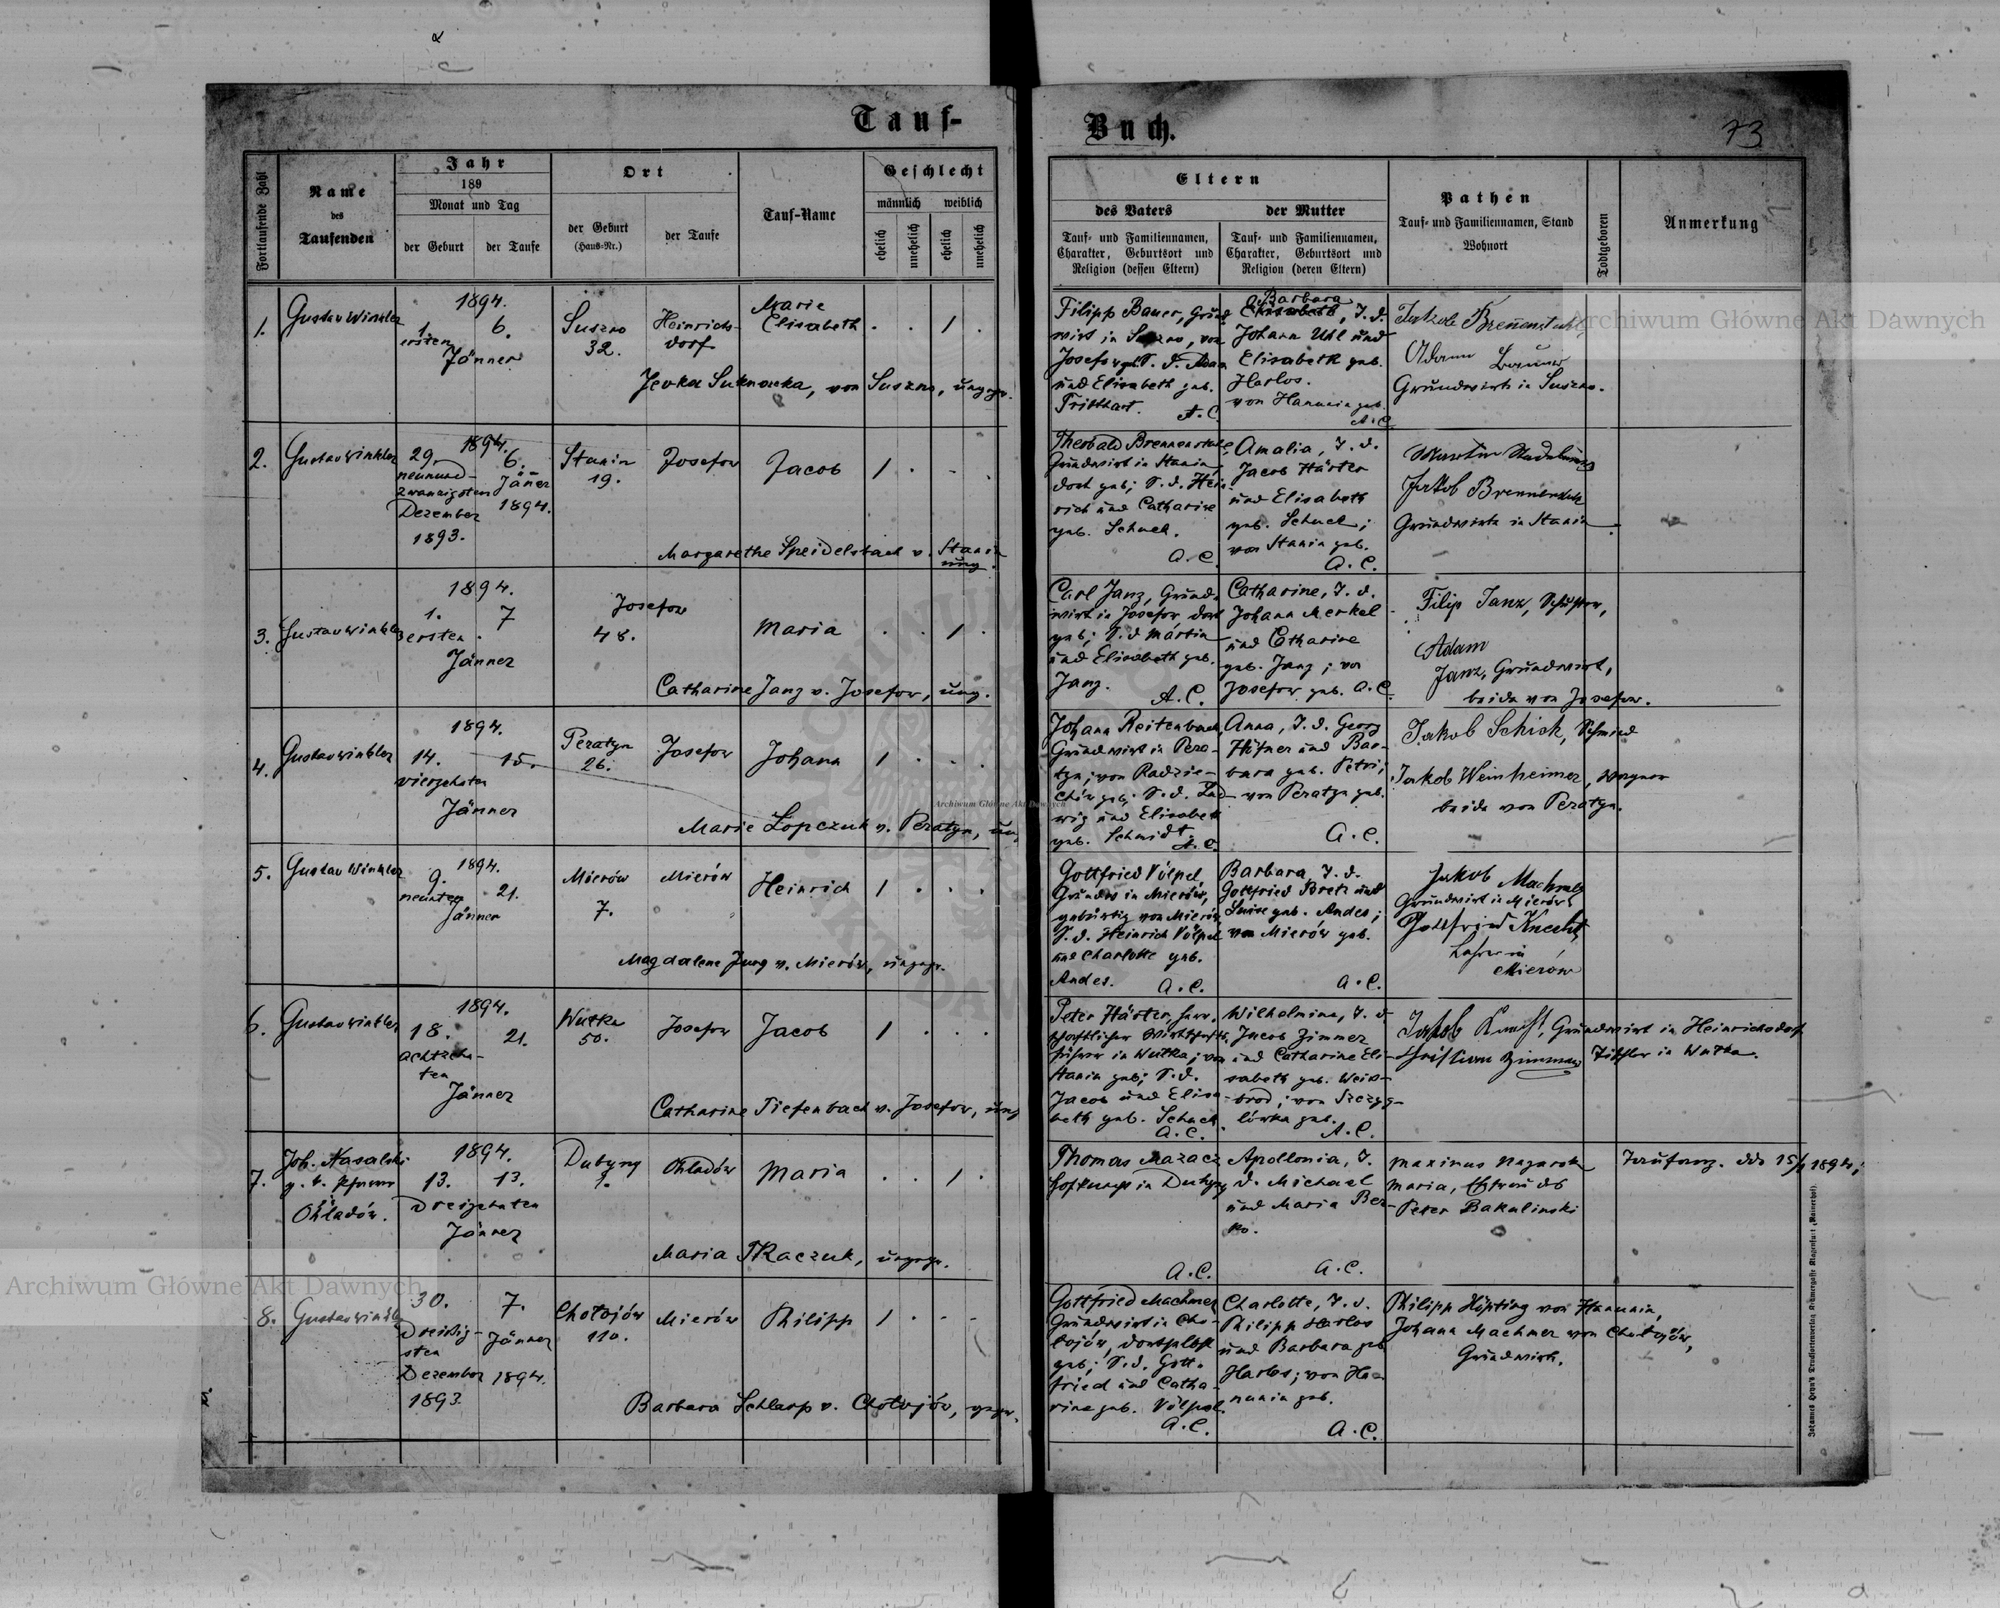 Tauf-
Buch.
73
Fortlaufende Zahl
Name
des
Taufenden
Jahr
189
Monat und Tag
der Geburt
der Taufe
Ort
der Geburt
(Haus-Nr.)
der Taufe
Tauf-Name
Geschlecht
männlich
weiblich
ehelich
unehelich
ehelich
unehelich
Eltern
des Vaters
der Mutter
Tauf- und Familiennamen,
Charakter, Geburtsort und
Religion (dessen Eltern)
Tauf- und Familiennamen,
Charakter, Geburtsort und
Religion (deren Eltern)
Pathen
Tauf- und Familiennamen, Stand
Wohnort
Todtgeboren
Anmerkung
1.
Gustav Winkler
1894.
1.
ersten
6.
Jänner
Suszno
32.
Heinrichs-
dorf
Marie
Elisabeth
. . 1 .
Suknacka, von Suszno, ungepr.
Filipp Bauer, Grund
wirt in Suszno, von
Josefow geb. S. d. Adam
und Elisabeth geb.
A. C.
Barbara
Elisabeth, T. d.
Johann Uhl und
Elisabeth geb.
Harlos.
von Hanunin geb.
A. C.
Jakob Brennenstuhl
Adam
Grundwirth in Suszno.
2.
Gustav Winkler
1894.
29.
neunund-
zwanzigsten
Dezember
1893.
6.
Jäner
1894.
Stanin
19.
Josefow
Jacob
1 . . .
Margarethe Speidelsbach v. Stanin
ung.
Theobald Brennenstuhl
Grundwirt in Stanin,
dort geb; S. d. Hein
rich und Catharine
geb. Schuck.
A. C.
Amalia, T. d.
Jacob Härter
und Elisabeth
geb. Schuck;
von Stanin geb.
A. C.
Martin
Jakob Brennenstuhl
Grundwirth in Stanin
3.
Gustav Winkler
1894.
1.
ersten
7
Jänner
Josefow
48.
Maria
. . 1 .
Catharine Janz v. Josefow, ung.
Carl Janz, Grund-
wirt in Josefow, dort
geb; S. d. Martin
und Elisabeth geb.
Janz.
A. C.
Catharine, T. d.
Johann Merkel
und Catharine
geb. Janz; von
Josefow geb. A. C.
Filip Janz, Schuster,
Adam
Janz, Grundwirt,
beide von Josefow.
4.
Gustav Winkler
1894.
14.
vierzehnten
15.
Jänner
Peratyn
26.
Josefow
Johann
1 . . .
Marie Lopczuk v. Peratyn, un.
Johann Reitenbach,
Grundwirt in Pera-
tyn; von Radzie-
chów geb; S. d. Lud
wig und Elisabeth
geb. Schmidt.
A. C.
Anna, T. d. Georg
Hüfner und Bar-
bara geb. Petri;
von Peratyn geb.
A. C.
Jakob Schick, Schmied
Jakob Weinheimer, Wagner
beide von Peratyn.
5.
Gustav Winkler
1894.
9.
neunten
21.
Jänner
Mierów
7.
Mierów
Heinrich
1 . . .
Magdalene Jung v. Mierów, ungepr.
Gottfried Völpel
Grundw. in Mierów,
gebürtig von Mierów
S. d. Heinrich Völpel
und Charlotte geb.
Andes.
A. C.
Barbara, T. d.
Gottfried Bretz und
Luise geb. Andes;
von Mierów geb.
A. C.
Jakob
Grundwirt in Mierów
Gottfried Knecht
Lehrer in
Mierów
6.
Gustav Winkler
1894.
18.
achtzehn-
ten
21.
Jänner
Wutka
50.
Josefow
Jacob
1 . . .
Catharine Tiefenbach v. Josefow, ung
Peter Härter, herr-
schaftlicher Wirtschafts-
führer in Wutka; von
Stanin geb; S. d.
Jacob und Elisa-
beth geb. Schuck.
A. C.
Wilhelmine, T. d.
Jacob Zimmer
und Catharine Eli-
sabeth geb. Weis-
brod; von Szczyg-
lówka geb.
A. C.
Jakob Kraft, Grundwirt in Heinrichsdorf
Christian Zimmer Tischler in Wutka.
7.
Joh. Nasalski
g. k. Pfarrer
Ohladów.
1894.
13.
13.
Dreizehnten
Jänner
Dubyny
1.
Ohladów
Maria
. . 1 .
Maria Tkaczuk, ungepr.
Thomas Mazacz
Hofknecht in Dubyny
A. C.
Apollonia, T.
d. Michael
und Maria Ber-
ko.
A. C.
Maximus
Maria, Ehefrau des
Peter Bakalinski
1894;
8.
Gustav Winkler
30.
Dreißig-
sten
Dezember
1893
7.
Jänner
1894.
Cholojów
110.
Mierów
Philipp
1 . . .
Barbara Schlarp v. Cholojów, ungepr.
Gottfried Machmer
Grundwirt in Cho-
lojów, dortselbst
geb; S. d. Gott-
fried und Catha-
rina geb. Völpel.
A. C.
Charlotte, T. d.
Philipp Harlos
und Barbara geb
Harlos; von Ha-
nunin geb.
A. C.
Philipp Höpting von Hanunin,
Johann Machmer von Cholojów,
Grundwirth.
Archiwum Główne Akt Dawnych
Archiwum Główne Akt Dawnych
Archiwum Główne Akt Dawnych